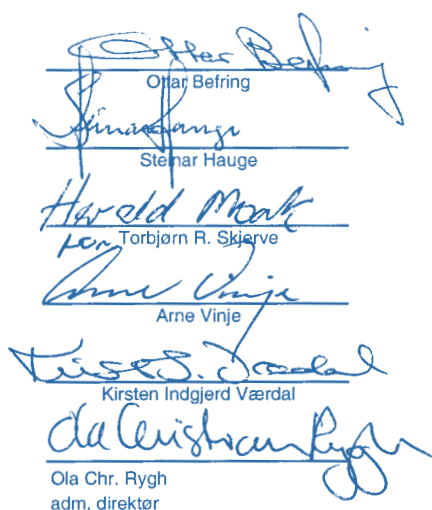 Ottar Befring
Ottar Befring
Steinar Hauge
Steinar Hauge
Harald Moak
for Torbjørn R. Skjerve
Arne Vinje
Arne Vinje
Kirsten Indgjerd Værdal
Ola Christian Rygh
Ola Chr. Rygh
adm. direktør